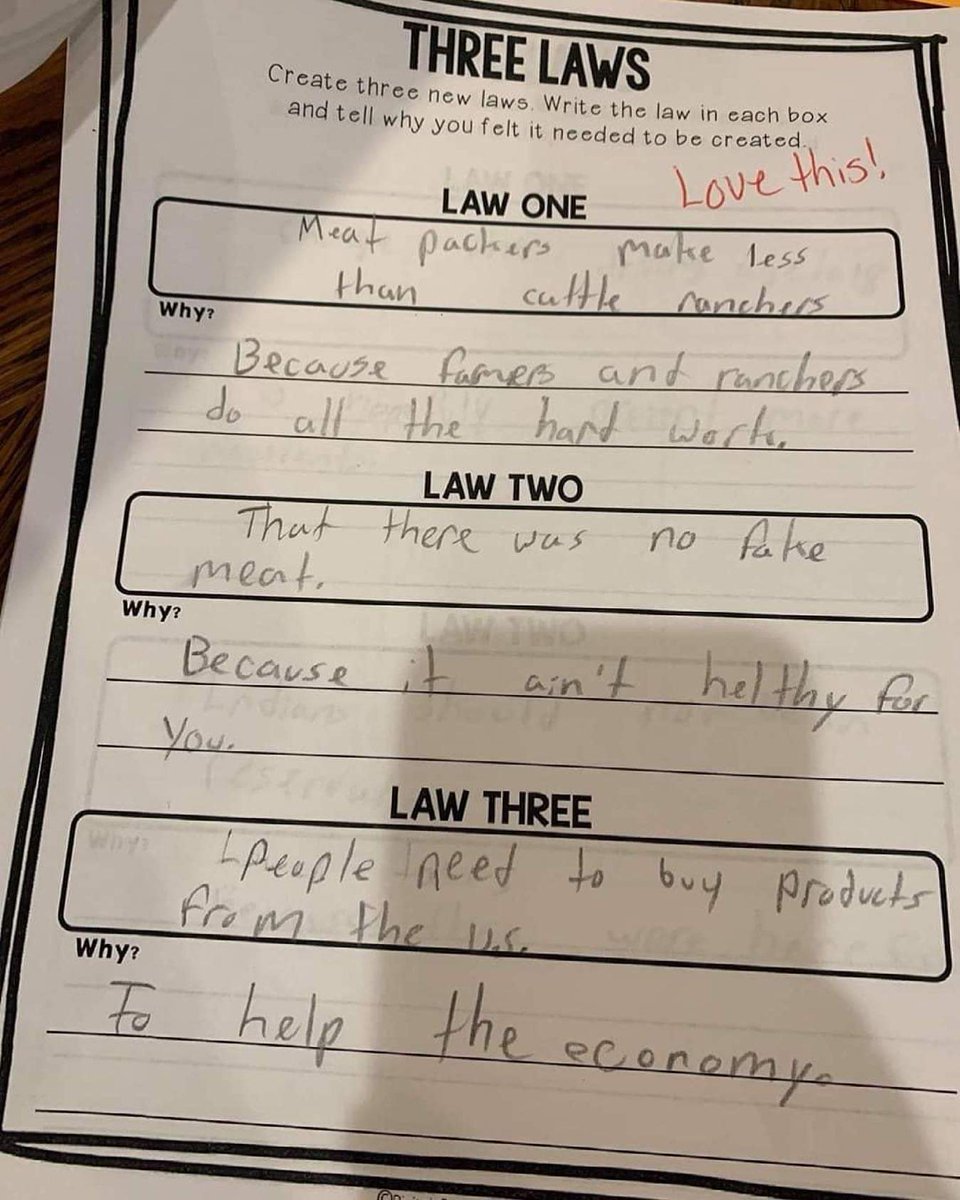 THREE LAWS
Create three new laws. Write the law in each box
and tell why you felt it needed to be created.
Love this!
LAW ONE
Meat packers make less
than cattle ranchers
Why?
Because famers and ranchers
do all the hard work.
LAW TWO
That there was no fake
meat.
Why?
Because it ain't helthy for
you.
LAW THREE
people need to buy products
from the U.S.
Why?
To help the economy.